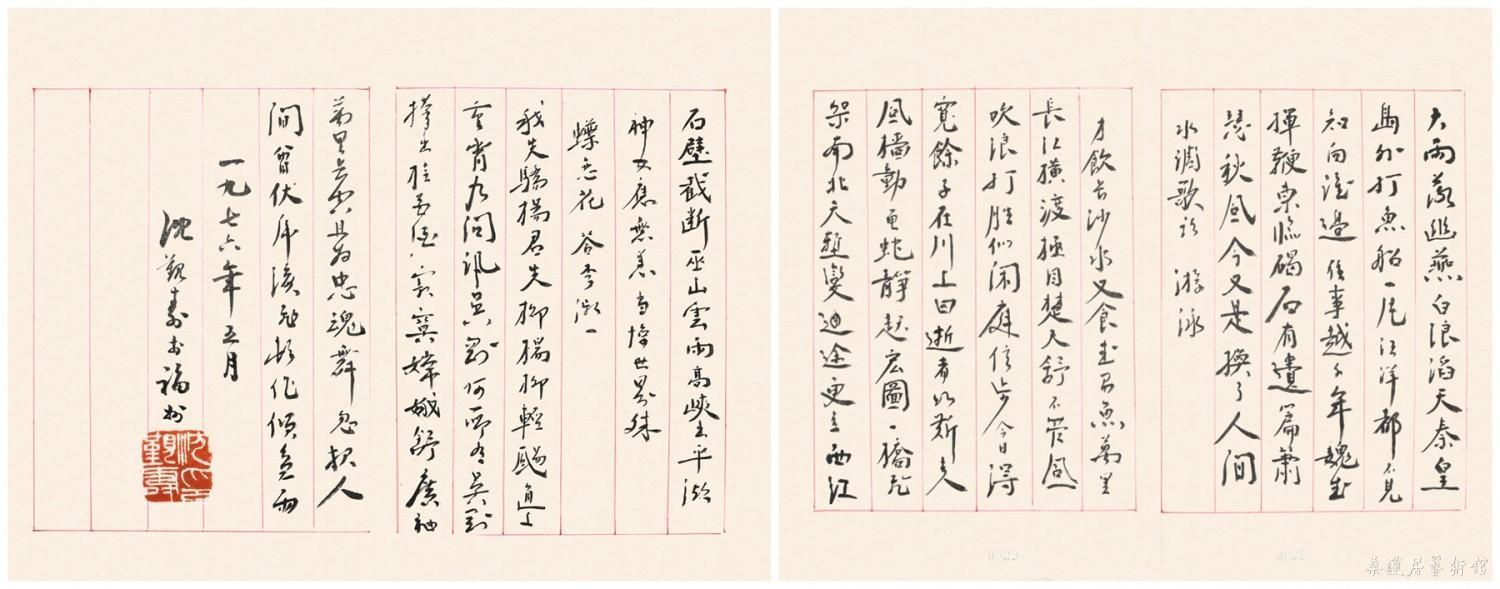 大雨落幽燕白浪滔天秦皇
島外打魚船一片汪洋都不見
知向誰邊 往事越千年魏武
揮鞭東臨碣石有遺篇蕭
瑟秋風今又是換了人間
水調歌頭 游泳
才飲長沙水又食武昌魚萬里
長江橫渡極目楚天舒不管風
吹浪打勝似閑庭信步今日得
寬餘子在川上曰逝者如斯夫
風檣動龜蛇靜起宏圖一橋飛
架南北天塹變通途更立西江
石壁截斷巫山雲雨高峽出平湖
神女應無恙當惊世界殊
蝶恋花 答李淑一
我失驕楊君失柳楊柳輕颺直上
重霄九問訊吳剛何所有吳剛
捧出桂花酒 寂寞嫦娥舒廣袖
萬里長空且為忠魂舞忽報人
間曾伏虎淚飛頓作傾盆雨
一九七六年五月
沈覲壽書福州
桑蓮居藝術館